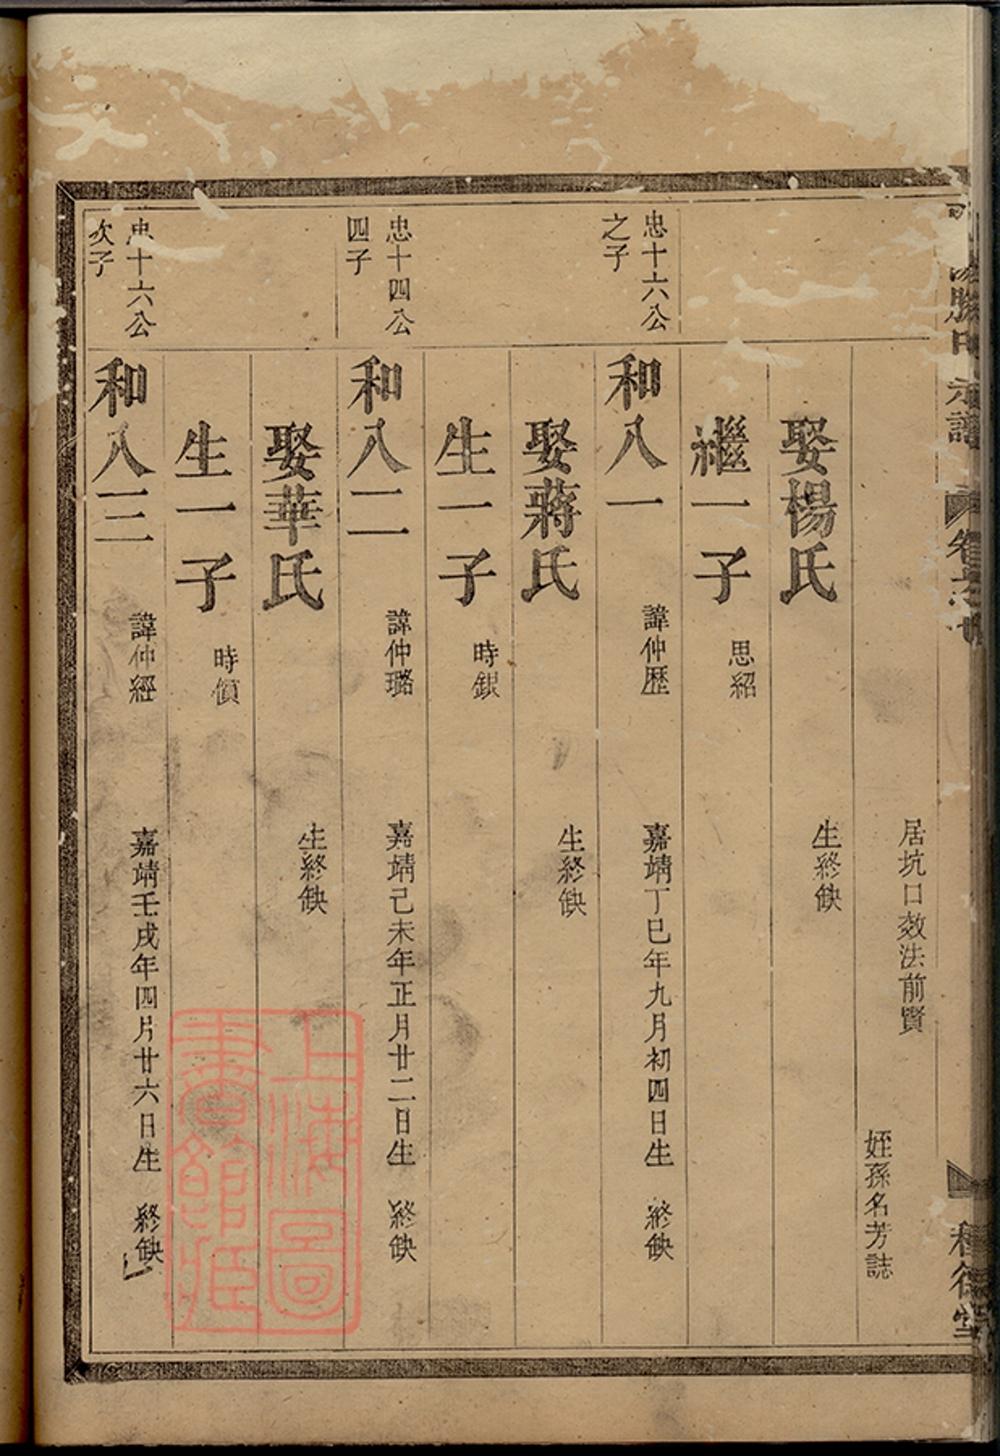 居坑口效法前賢
姪孫名芳誌
娶楊氏 生終缺
繼一子 思紹
忠十六公之子
和八一 諱仲歷 嘉靖丁巳年九月初四日生 終缺
娶蔣氏 生終缺
生一子 時銀
忠十四公四子
和八二 諱仲璐 嘉靖己未年正月廿二日生 終缺
娶華氏 生終缺
生一子 時償
忠十六公次子
和八三 諱仲經 嘉靖壬戌年四月廿六日生 終缺
上海圖書館藏